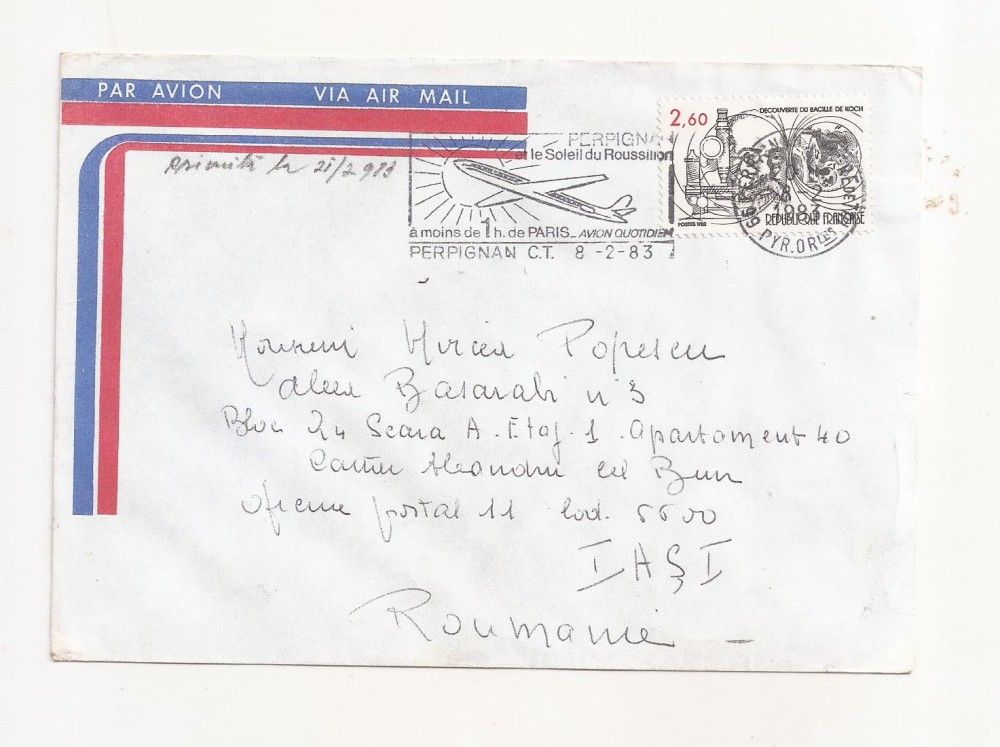 PAR AVION VIA AIR MAIL
2,60 DECOUVERTE DU BACILLE DE KOCH
PERPIGNA
et le Soleil du Roussillon
à moins de 1 h. de PARIS_ AVION QUOTIDIEN
PERPIGNAN C.T. 8 -2-83
POSTES 1982 REPUBLIQUE FRANÇAISE
PYR. ORLES
la 21/2 983
Monsieur Mircea Popescu
aleea Basarabi n 3
Bloc I4 Scara A. Etaj. 1. Apartament 40
Cartier Alexandru cel Bun
oficiul postal 11 Cod. 6600
IAŞI
Roumanie -